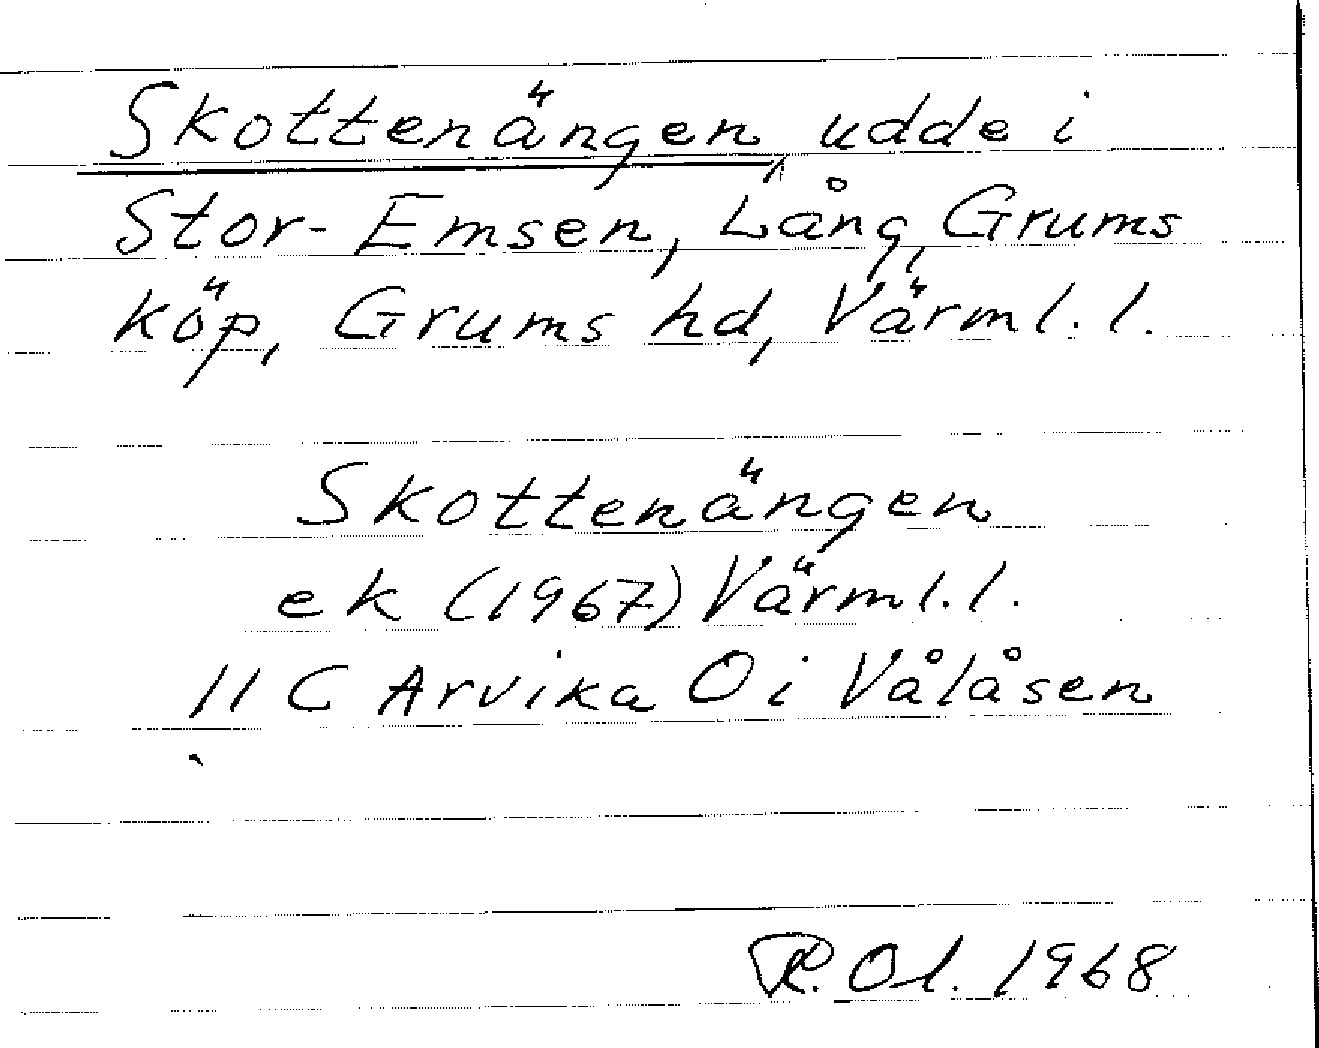 Skottenängen, udde i
Stor-Emsen, Lång, Grums
köp, Grums hd, Värml. l.
Skottenängen
ek (1967) Värml. l.
11 C Arvika O i Vålåsen
R. Ol. 1968